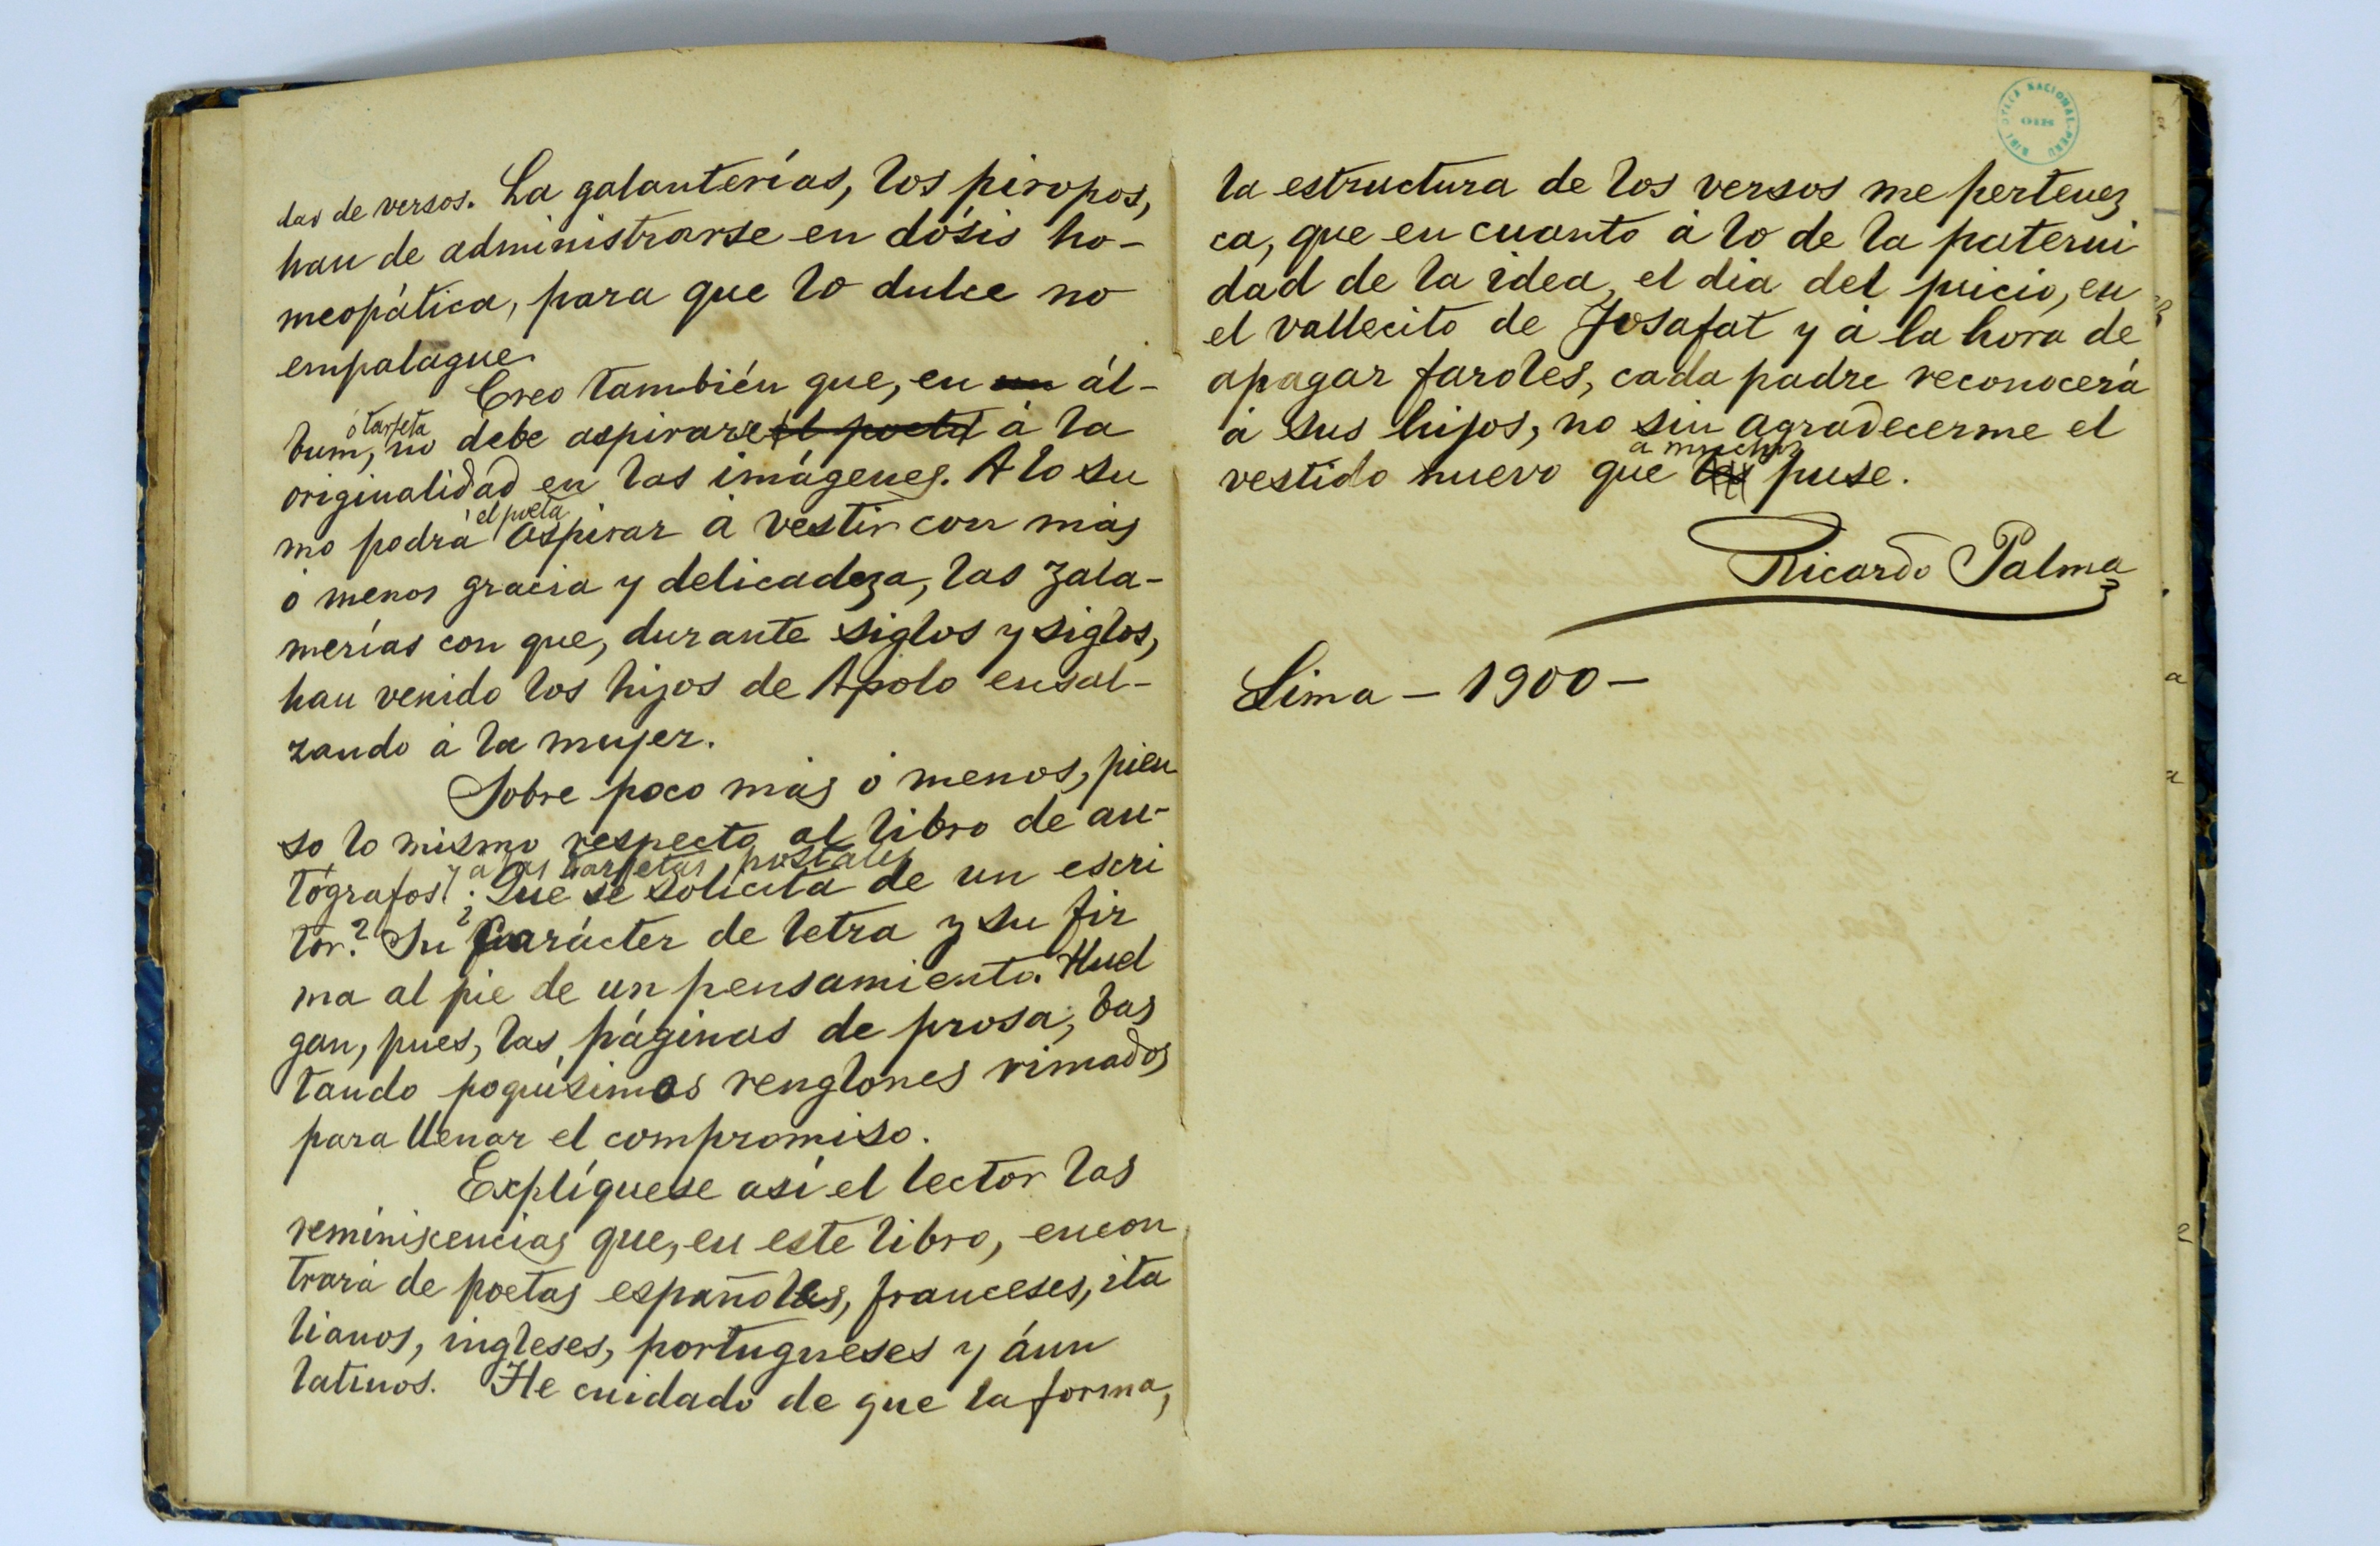 das de versos. La galanterías, los piropos,
han de administrarse en dósis ho-
meopática, para que lo dulce no
empalague.
Creo también que, en un ál-
ó tarjeta
bum, no debe aspirarse el poeta á la
originalidad en las imágenes. A lo su
el poeta
mo podrá aspirar á vestir con más
ó menos gracia y delicadeza, las zala-
merías con que, durante siglos y siglos,
han venido los hijos de Apolo ensal-
zando á la mujer.
Sobre poco más ó menos, pien
so lo mismo respecto al libro de au-
y a las tarjetas postales
tógrafos. ¿Que se solicita de un escri
tor? Su carácter de letra y su fir
ma al pie de un pensamiento. Huel
gan, pues, las páginas de prosa; bas
tando poquísimos renglones rimados
para llenar el compromiso.
Explíquese así el lector las
reminiscencias que, en este libro, encon
trará de poetas españoles, franceses, ita
lianos, ingleses, portugueses y áun
latinos. He cuidado de que la forma,
BIBLIOTECA NACIONAL-PERU
la estructura de los versos me pertenez
ca, que en cuanto á lo de la paterni
dad de la idea, el dia del juicio, en
el vallecito de Josafat y á la hora de
apagar faroles, cada padre reconocerá
á sus hijos, no sin agradecerme el
a muchos
vestido nuevo que les puse.
Ricardo Palma
Lima - 1900 -